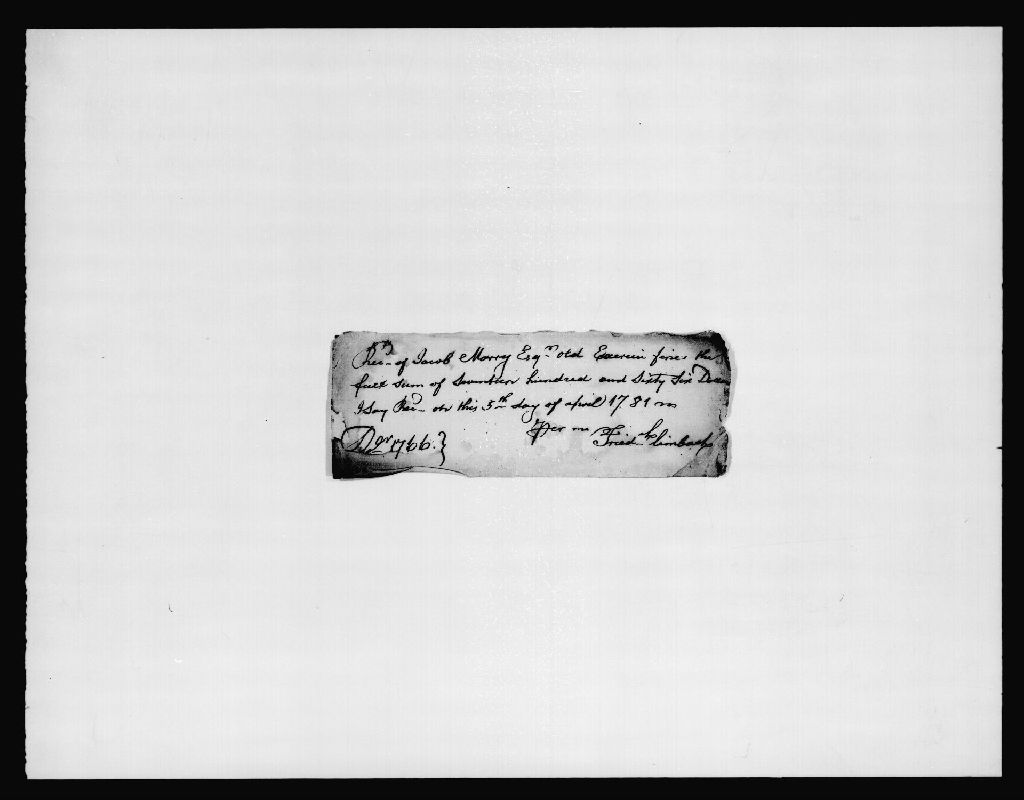 Rec.d of Jacob Morry Esqr. old Excercis fines the
full Sum of Seventeen hundred and Sixty Six
I Say Rec.d on this 5th day of april 1781
Per me Fried. Limbach
1766.